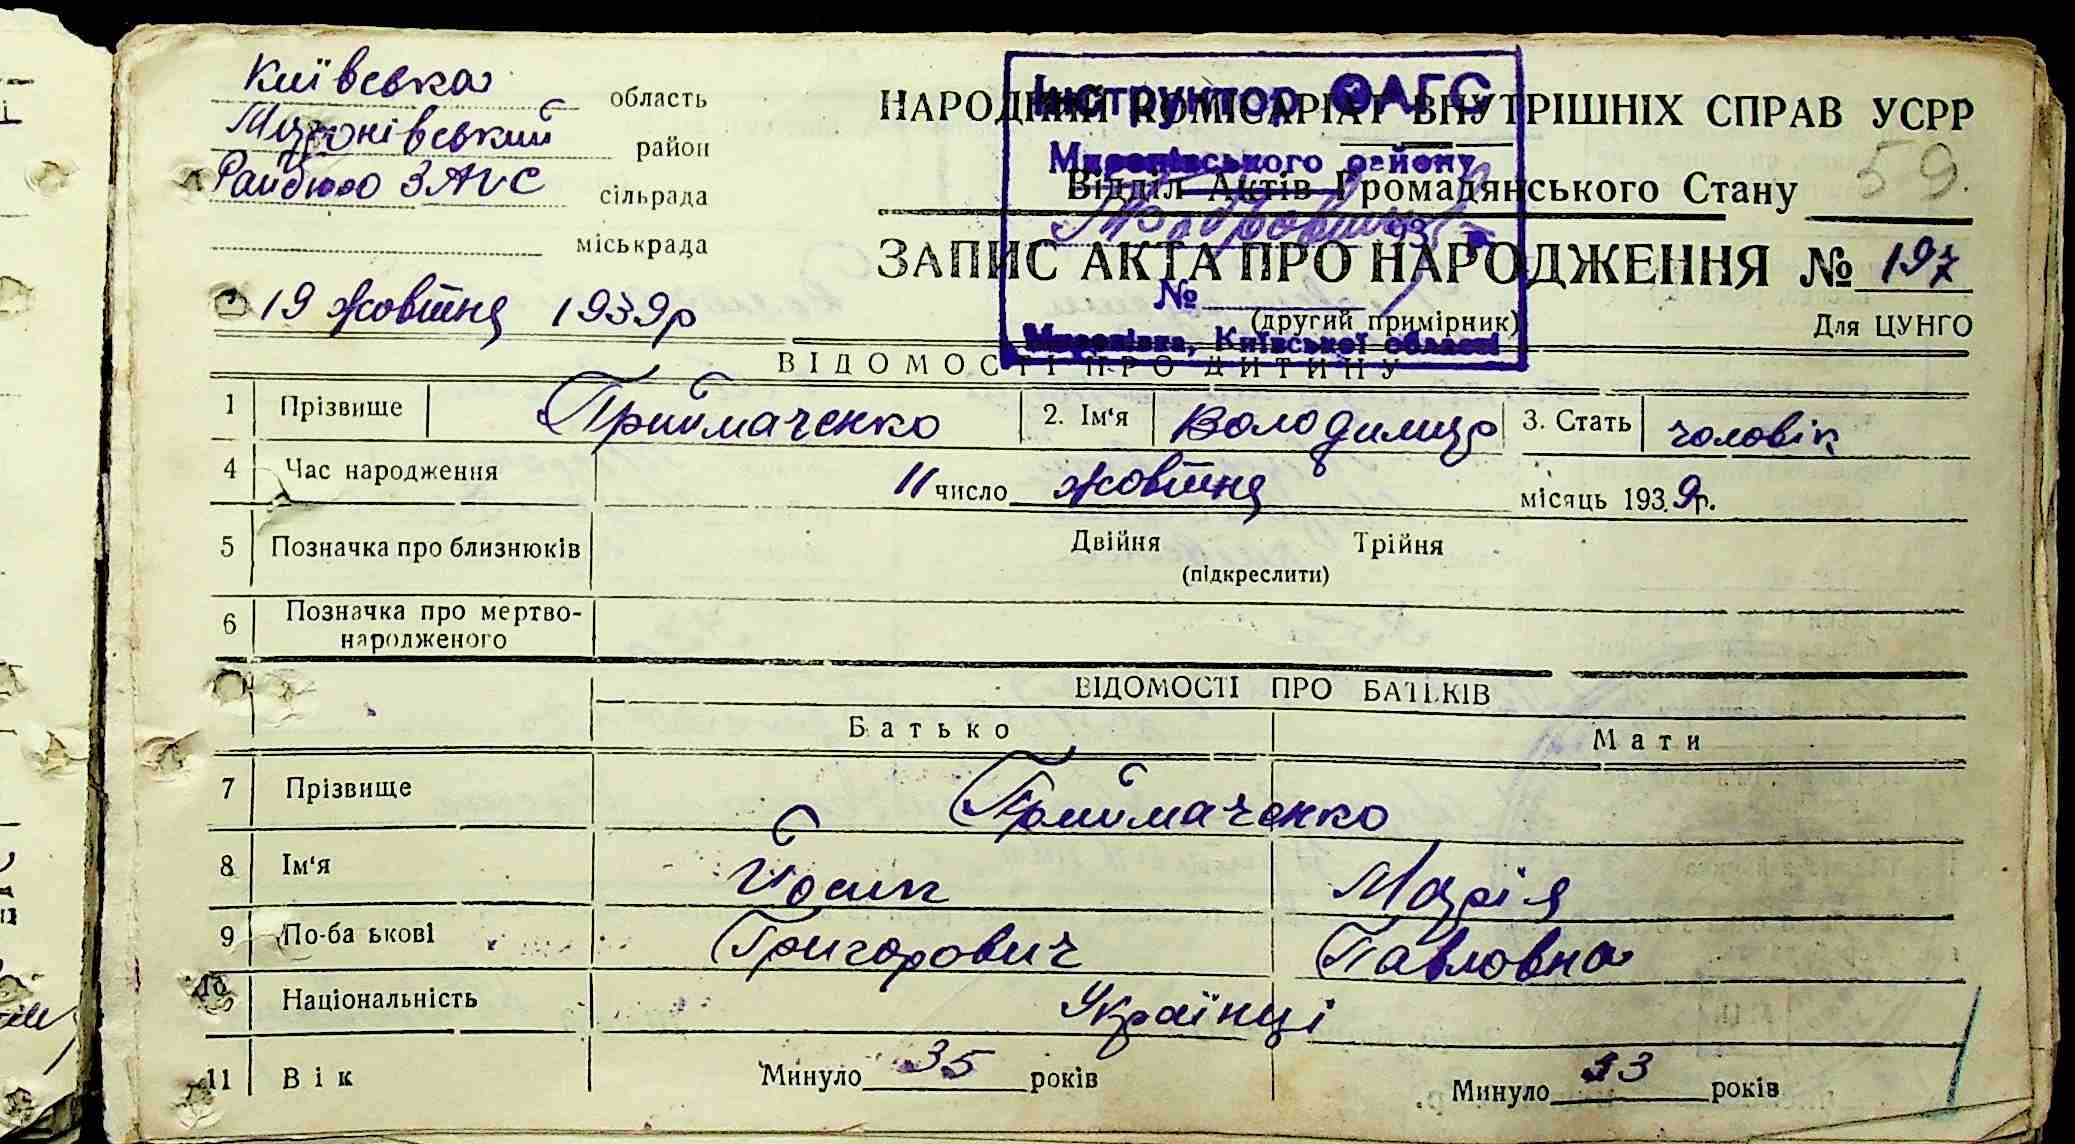 Київська область
Миронівський район
Райбюро ЗАГС сільрада
міськрада
19 жовтня 1939р
НАРОДНИЙ КОМІСАРІАТ ВНУТРІШНІХ СПРАВ УСРР
Відділ Актів Громадянського Стану
59.
ЗАПИС АКТА ПРО НАРОДЖЕННЯ № 197
(другий примірник)
Для ЦУНГО
Інструктор ОАГС
Миронівського району
№
Миронівка, Київської області
ВІДОМОСТІ ПРО ДИТИНУ
1 Прізвище Приймаченко 2. Ім'я Володимир 3. Стать чоловік
4 Час народження 11 число жовтня місяць 1939р.
5 Позначка про близнюків Двійня Трійня
(підкреслити)
6 Позначка про мертво-
народженого
ВІДОМОСТІ ПРО БАТЬКІВ
Батько Мати
7 Прізвище Приймаченко
8 Ім'я Йосип Марія
9 По-ба ькові Григорович Павловна
10 Національність Українці
11 Вік Минуло 35 років Минуло 33 років